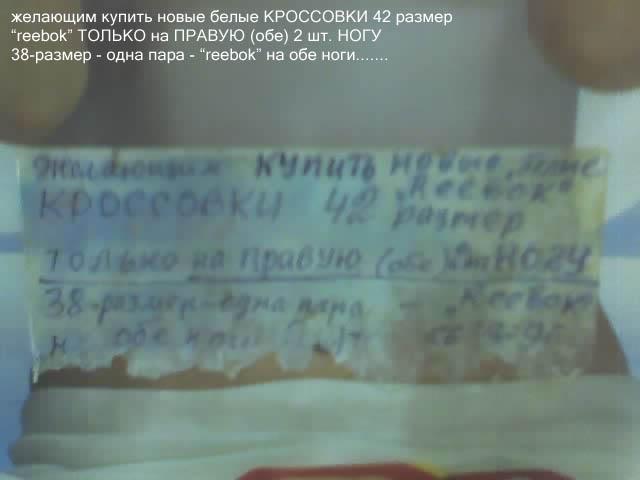 желающим купить новые белые КРОССОВКИ 42 размер
“reebok” ТОЛЬКО на ПРАВУЮ (обе) 2 шт. НОГУ
38-размер - одна пара - “reebok” на обе ноги.......
Желающим КУПИТЬ новые белые
КРОССОВКИ 42 „Reebok“
размер
только на правую (обе) НОГУ
38-размер-одна пара - „Reebok
на обе ноги